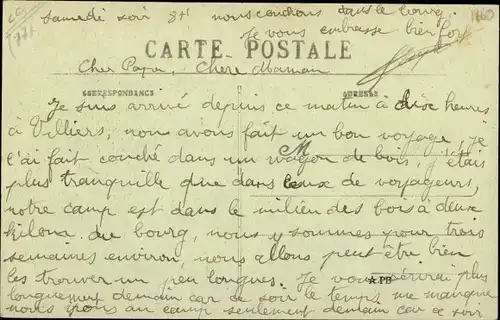 Samedi soir 8H nous couchons dans le bourg.
Je vous embrasse bien fort
CARTE POSTALE
Cher Papa, Chère Maman
CORRESPONDANCE
ADRESSE
Je suis arrivé depuis ce matin à dix heures
à Villiers, nous avons fait un bon voyage, je
l'ai fait couché dans un wagon de bois, j'étais
plus tranquille que dans ceux de voyageurs,
notre camp est dans le milieu des bois à deux
kilom. du bourg, nous y sommes pour trois
semaines environ, nous allons peut être bien
les trouver un peu longues. Je vous écrirai plus
PB
longuement demain car ce soir le temps me manque
nous irons au camp seulement demain car ce soir